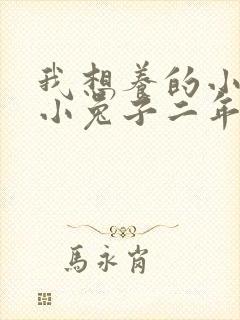 我想养的小
小兔子二年
馬永肖